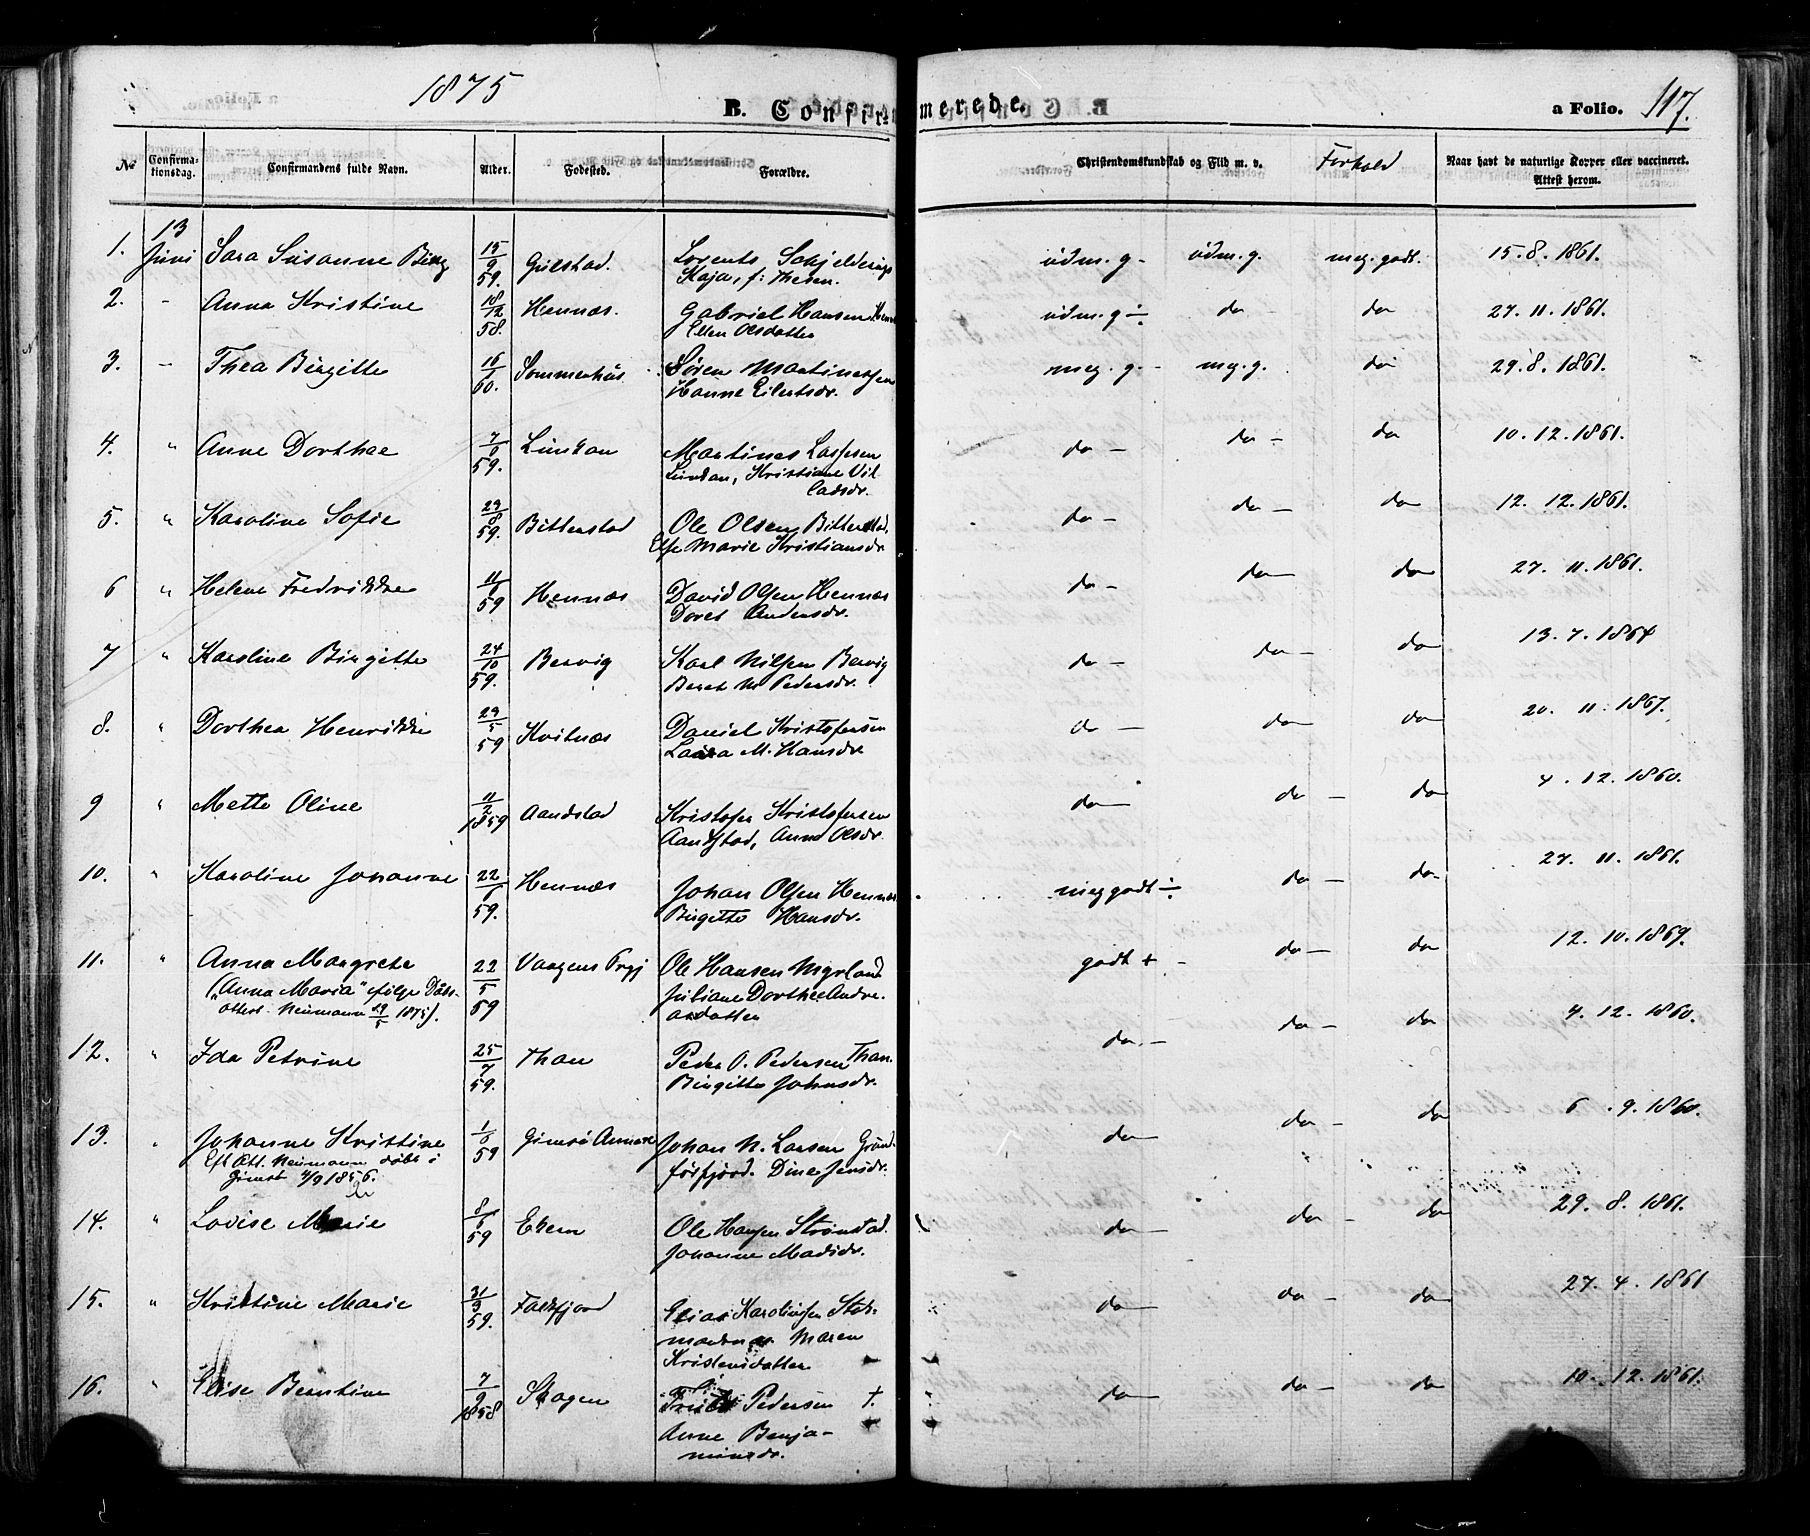 1875
B. Confirmerede.
a Folio. 117.
No Confirmationsdag. Confirmandens fulde Navn. Alder. Fødested. Forældre. Christendomskundskab og Flid m. v. Forhold Naar havt de naturlige Kopper eller vaccineret. Attest herom.
1. 13 Juni Sara Susanne Bing 15/9 59. Gulstad. Lorents Schjelderup udm. g. udm. g. meg. godt. 15. 8. 1861.
Kaja, f: Thesen.
2. - Anna Kristine 18/12 58. Hennæs. Gabriel Hansen udm. g ÷ do - do 27. 11. 1861.
Ellen Olsdatter
3. - Thea Birgitte 16/1 60. Sommerhus Søren Martinessen meg. g. - meg. g. do 29. 8. 1861.
Hanne Eilertsdr.
4. " Anne Dorthea 7/6 59. Lunkan Martines Lassesen do - do - do 10. 12. 1861.
Lunkan, Kristiane Villadsdr.
5. " Karoline Sofie 29/8 59. Bitterstad Ole Olsen Bitterstad. do - do - do 12. 12. 1861.
Else Marie Kristiansdr.
6 " Helene Fredrikke 11/6 59 Hennæs David Olsen Hennæs do - do do 27. 11. 1861.
Doret Andersdr.
7 " Karoline Birgitte 24/10 59. Bervig Karl Nilsen Bervig do - do - do 13. 7. 1864
Beret M Pedersdr.
8. " Dorthea Henrikke 29/5 59 Kvitnæs Daniel Kristofersen do - do do 20. 11. 1867.
Laura M. Hansdr
9 " Mette Oline 11/2 1859 Aandstad Kristofer Kristofersen do do - do 4. 12. 1860.
Aandstad, Anna Olsdr.
10. " Karoline Johanne 22/6 59. Hennæs Johan Olsen Hennæs meg godt ÷ do - do 27. 11. 1861.
Birgitte Hansdr.
11. " Anna Margrete 22/5 59 Vaagens Prgj Ole Hansen Myrland godt + - do - do 12. 10. 1869.
("Anna Maria" ifølge Dåbs- Juliane Dorthea Andre-
attest Neumann 29/5 1875). asdatter
12. " Ida Petrine 25/7 59. Than Peder O. Pedersen Than do. - do - do 4. 12. 1860.
Birgitte Johnsdr.
13. " Johanne Kristine 1/6 59 Gimsø Annex Johan N. Larsen Grund- do do - do 6. 9. 1860.
Eft. Att. Neumann døbt i førfjord. Dine Jensdr.
Gimsø 4/9 1856.
14. " Lovise Marie 8/6 59 Ekern Ole Hansen Strønstad. do - do - do 29. 8. 1861.
Johanne Madsdr.
15. " Kristine Marie 31/3 59. Falkfjord Elias Karolinsen Stok- do do - do 27. 4. 1861
marknæs Maren
Kristensdatter
16. " Elise Berntine 7/9 1858 Skogen Pedersen †. do do - do 10. 12. 1861.
Anne Benja-
minsdr.